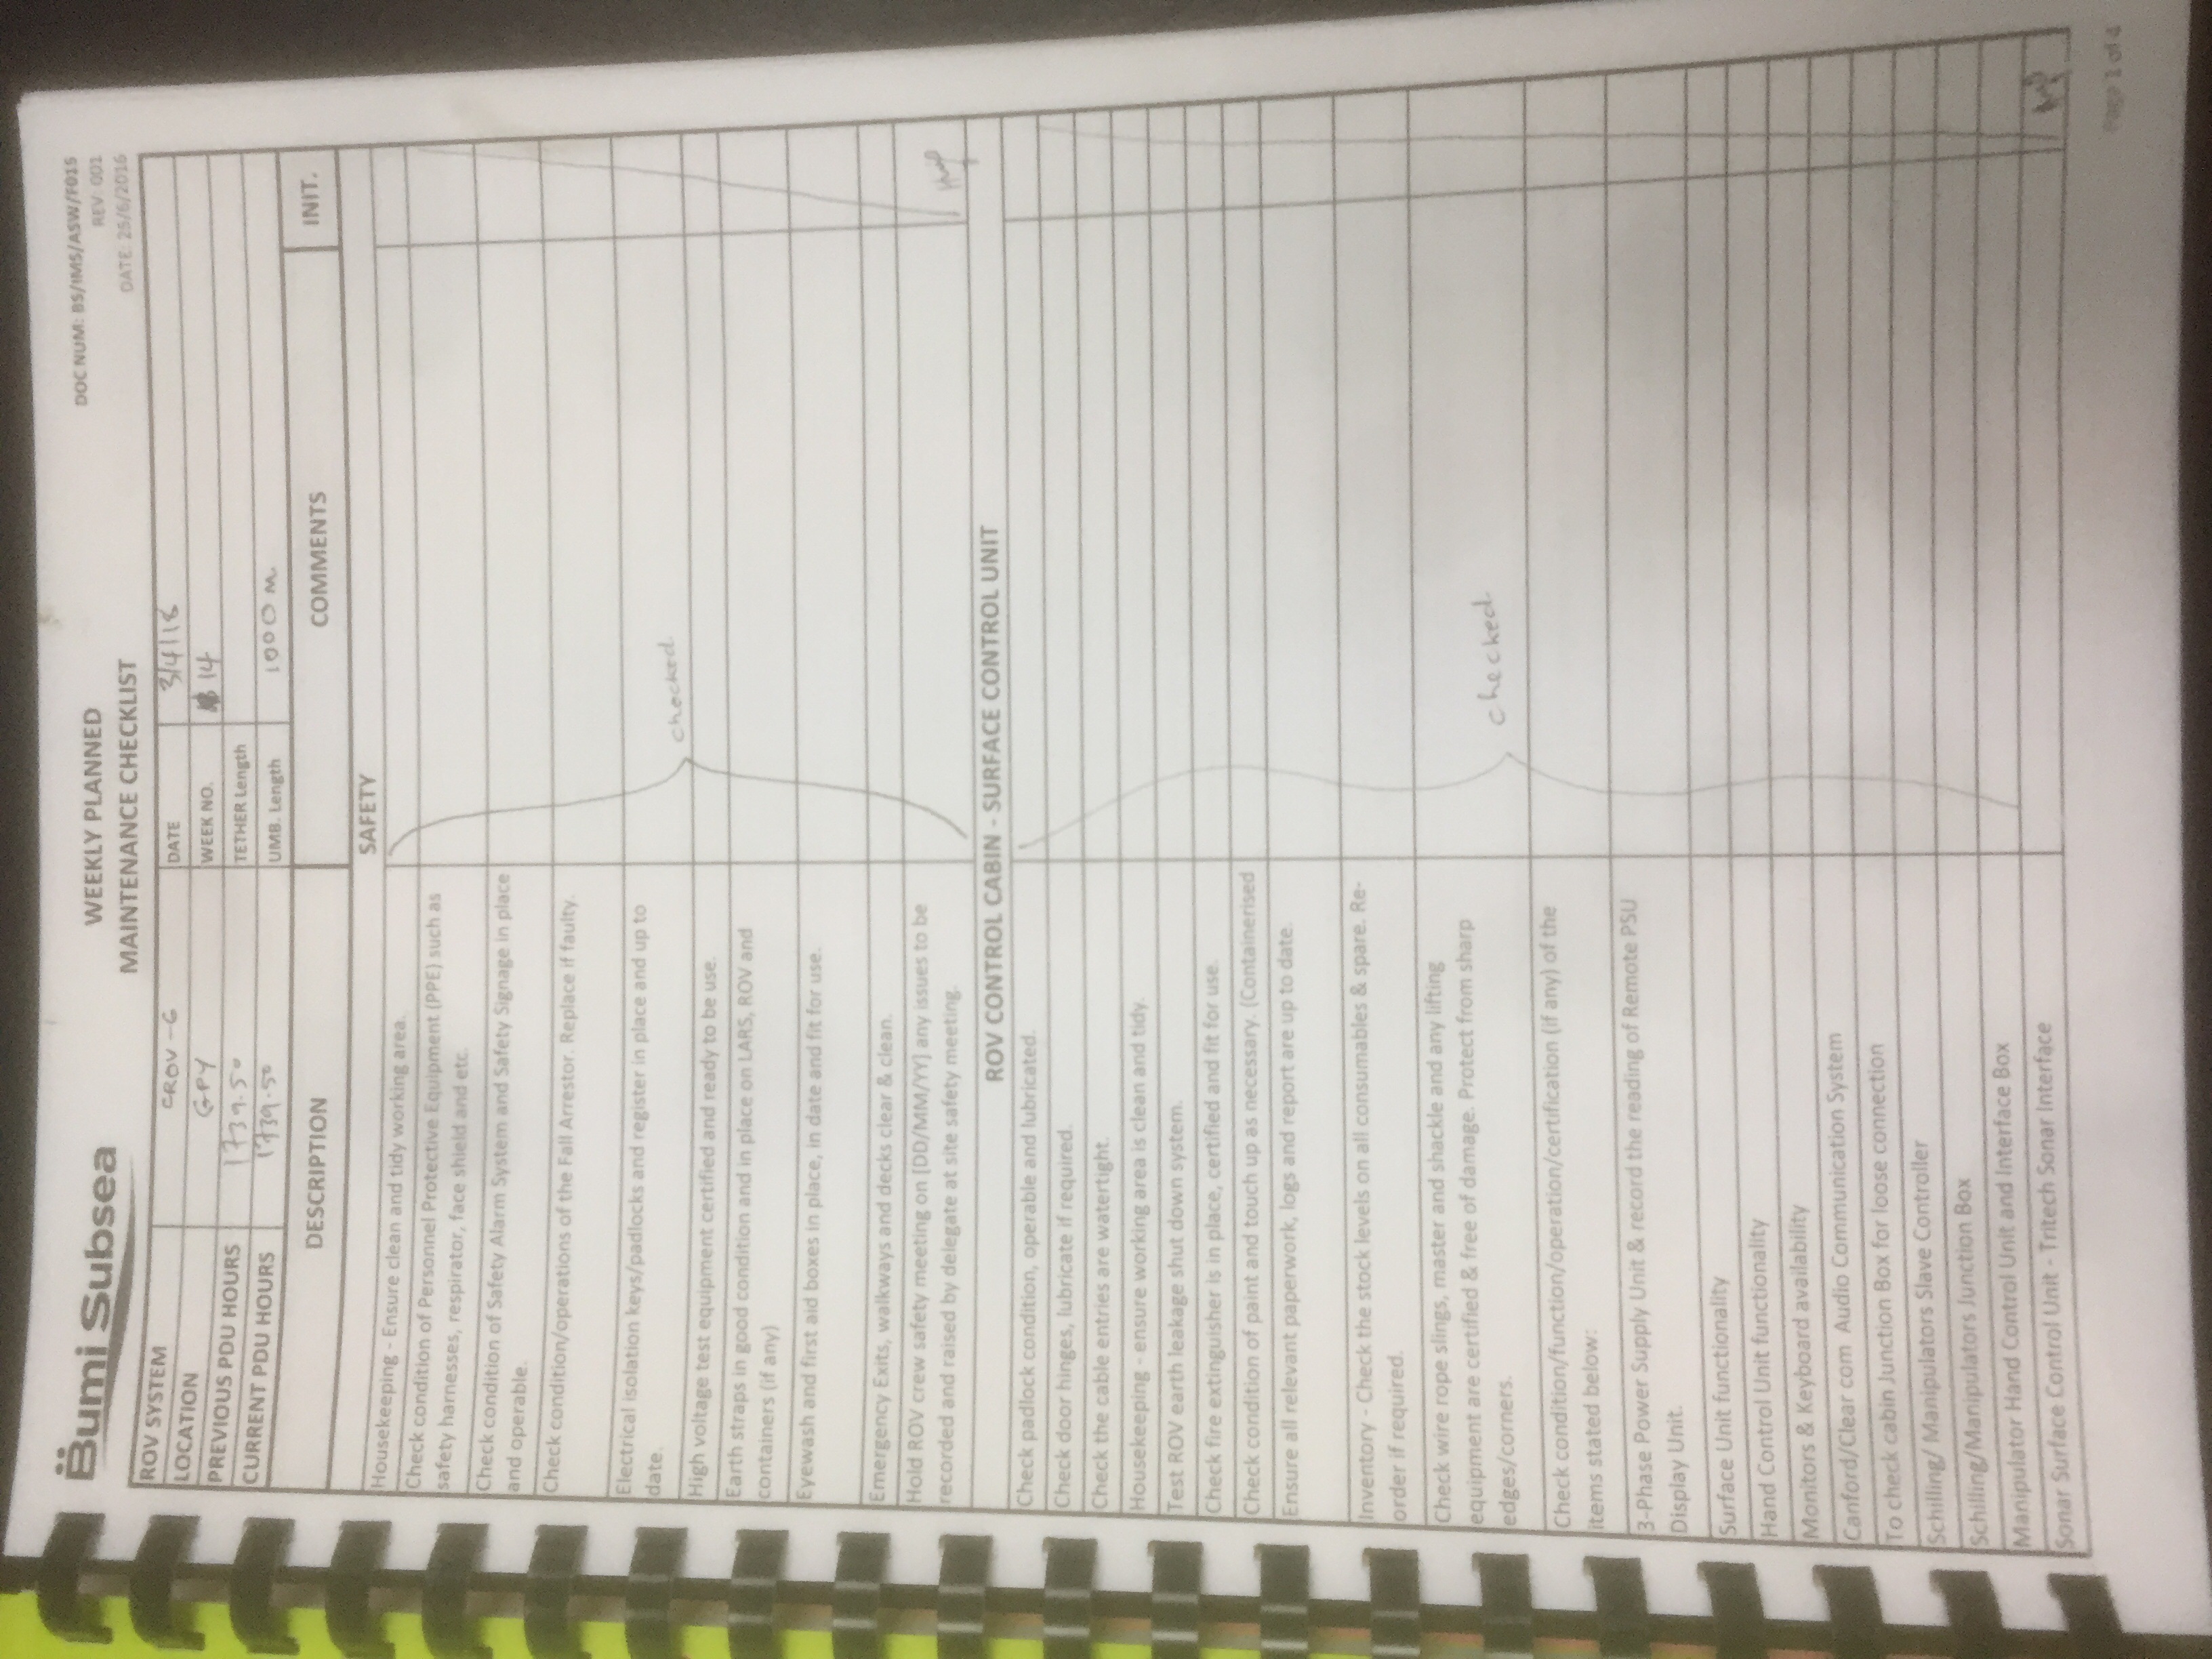 Bumi Subsea
WEEKLY PLANNED
MAINTENANCE CHECKLIST
DOC NUM: BS/IMS/ASW/F015
REV: 001
DATE: 25/6/2016
ROV SYSTEM CROV-6 DATE 3/4/18
LOCATION GPY WEEK NO. 14
PREVIOUS PDU HOURS 1739.50 TETHER Length
CURRENT PDU HOURS 1739.50 UMB. Length 1000 m.
DESCRIPTION COMMENTS INIT.
SAFETY
Housekeeping - Ensure clean and tidy working area.
Check condition of Personnel Protective Equipment (PPE) such as
safety harnesses, respirator, face shield and etc.
Check condition of Safety Alarm System and Safety Signage in place
and operable.
Check condition/operations of the Fall Arrestor. Replace if faulty.
Electrical isolation keys/padlocks and register in place and up to
date.
checked
High voltage test equipment certified and ready to be use.
Earth straps in good condition and in place on LARS, ROV and
containers (if any)
Eyewash and first aid boxes in place, in date and fit for use.
Emergency Exits, walkways and decks clear & clean.
Hold ROV crew safety meeting on [DD/MM/YY] any issues to be
recorded and raised by delegate at site safety meeting.
ROV CONTROL CABIN - SURFACE CONTROL UNIT
Check padlock condition, operable and lubricated.
Check door hinges, lubricate if required.
Check the cable entries are watertight.
Housekeeping - ensure working area is clean and tidy.
Test ROV earth leakage shut down system.
Check fire extinguisher is in place, certified and fit for use.
Check condition of paint and touch up as necessary. (Containerised
Ensure all relevant paperwork, logs and report are up to date.
Inventory - Check the stock levels on all consumables & spare. Re-
order if required.
Check wire rope slings, master and shackle and any lifting
equipment are certified & free of damage. Protect from sharp
edges/corners.
checked
Check condition/function/operation/certification (if any) of the
items stated below:
3-Phase Power Supply Unit & record the reading of Remote PSU
Display Unit.
Surface Unit functionality
Hand Control Unit functionality
Monitors & Keyboard availability
Canford/Clear com Audio Communication System
To check cabin Junction Box for loose connection
Schilling/ Manipulators Slave Controller
Schilling/Manipulators Junction Box
Manipulator Hand Control Unit and Interface Box
Sonar Surface Control Unit - Tritech Sonar Interface
Page 1 of 4